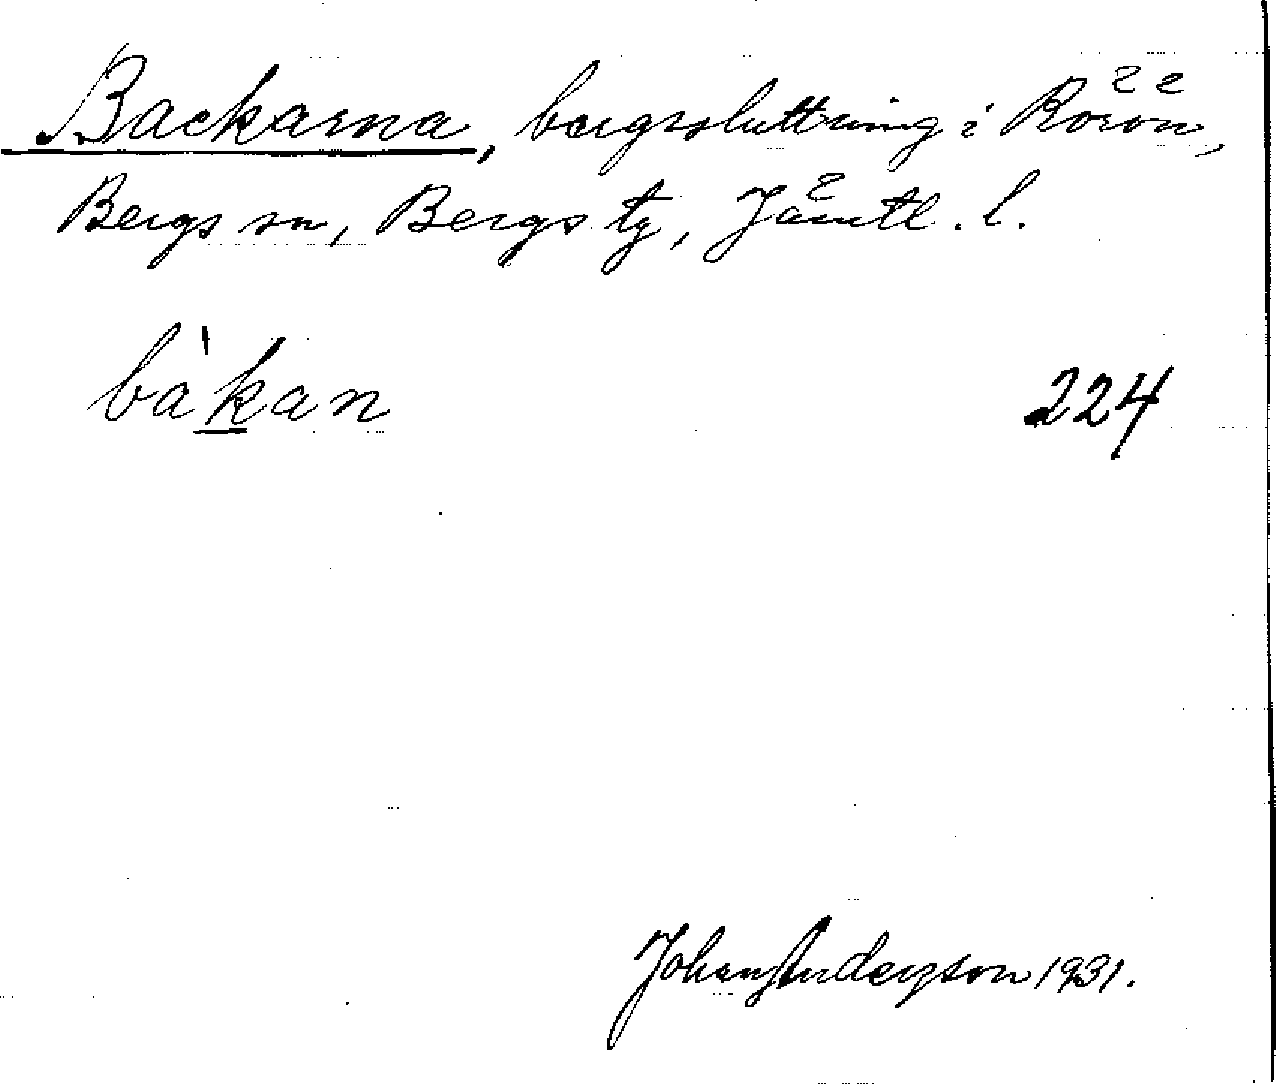 Backarna, bergssluttning i Rörön,
Bergs sn, Bergs tg, Jämtl. l.
bàkan 224
Johan Anderzson 1931.